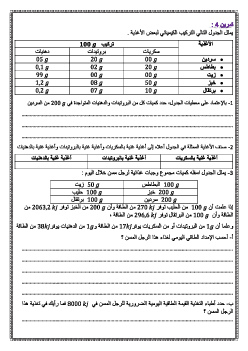 تمرين 4 :
يمثل الجدول التالي التركيب الكيميائي لبعض الأغذية .
الأغذية تركيب 100 g
سكريات بروتيدات دهنيات
سردين 00 g 20 g 05 g
بطاطس 20 g 02 g 0,1 g
زيت 00 g 00 g 99 g
خبز 50 g 08 g 1,2 g
برتقال 10 g 07 g 0,2 g
1- بالإعتماد على معطيات الجدول، حدد كميات كل من البروتيدات والدهنيات المتواجدة في 200 g من السردين
2- صنف الأغذية الممثلة في الجدول أعلاه إلى أغذية غنية بالسكريات وأغذية غنية بالبروتيدات وأغذية غنية بالدهنيات
أغذية غنية بالسكريات أغذية غنية بالبروتيدات أغذية غنية بالدهنيات
3- يمثل الجدول أسفله كميات مجموع وجبات غذائية لرجل مسن خلال اليوم :
100 g البطاطس 50 g زيت
200 g خبز 100 g حليب
200 g سردين 100 g برتقال
إذا علمت أن 100 g من الحليب توفر 270 kj من الطاقة وأن 200 g من الخبز توفر 2063,2 kj من
الطاقة وأن 100 g من البرتقال توفر 296,6 kj من الطاقة ،
وعلما أن 1g من البروتيدات أو من السكريات يوفر 17kj من الطاقة و1g من الدهنيات يوفر 38kj من الطاقة
أ- أحسب الإمداد الطاقي اليومي لغذاء هذا الرجل المسن ؟
ب- حدد أطباء التغذية القيمة الطاقية اليومية الضرورية للرجل المسن في 8000 kj فما رأيك في تغذية هذا
الرجل المسن ؟